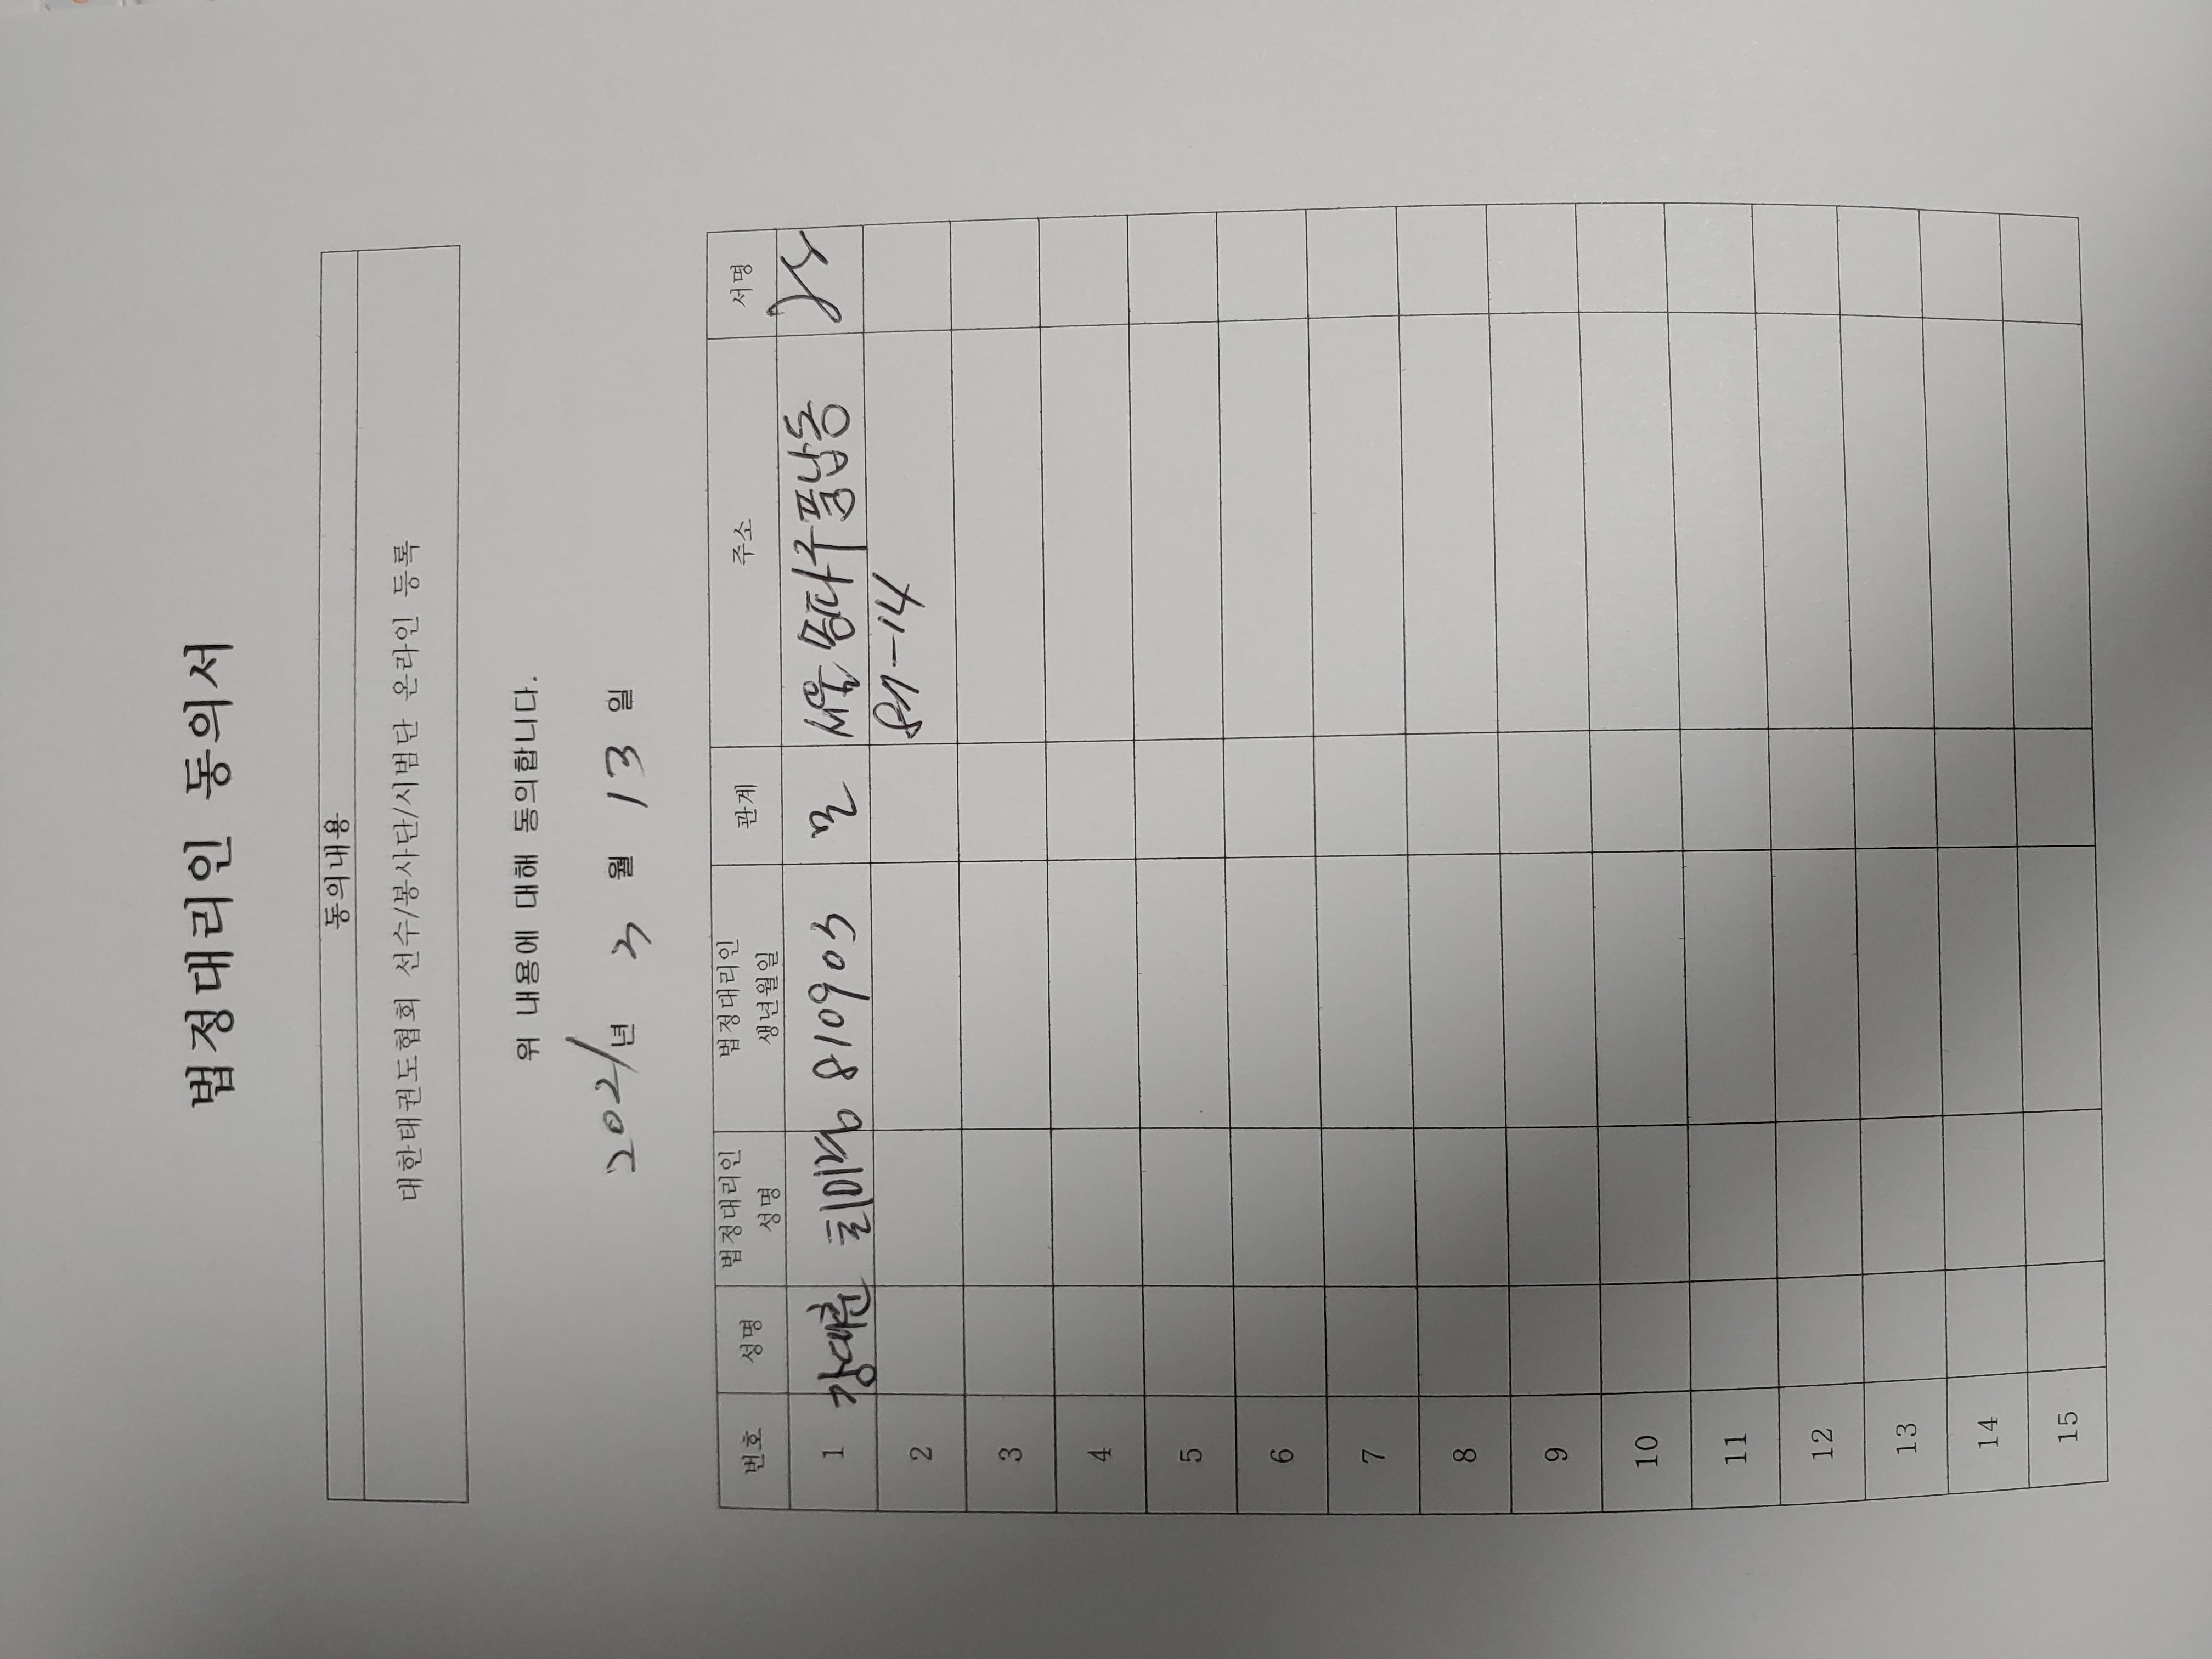 법정대리인 동의서
동의내용
대한태권도협회 선수/봉사단/시범단 온라인 등록
위 내용에 대해 동의합니다.
2021년 3월 13일
번호 성명 법정대리인 성명 법정대리인 생년월일 관계 주소 서명
1 강대한 최미정 810903 모 서울 송파구 풍납동
87-14
2
3
4
5
6
7
8
9
10
11
12
13
14
15